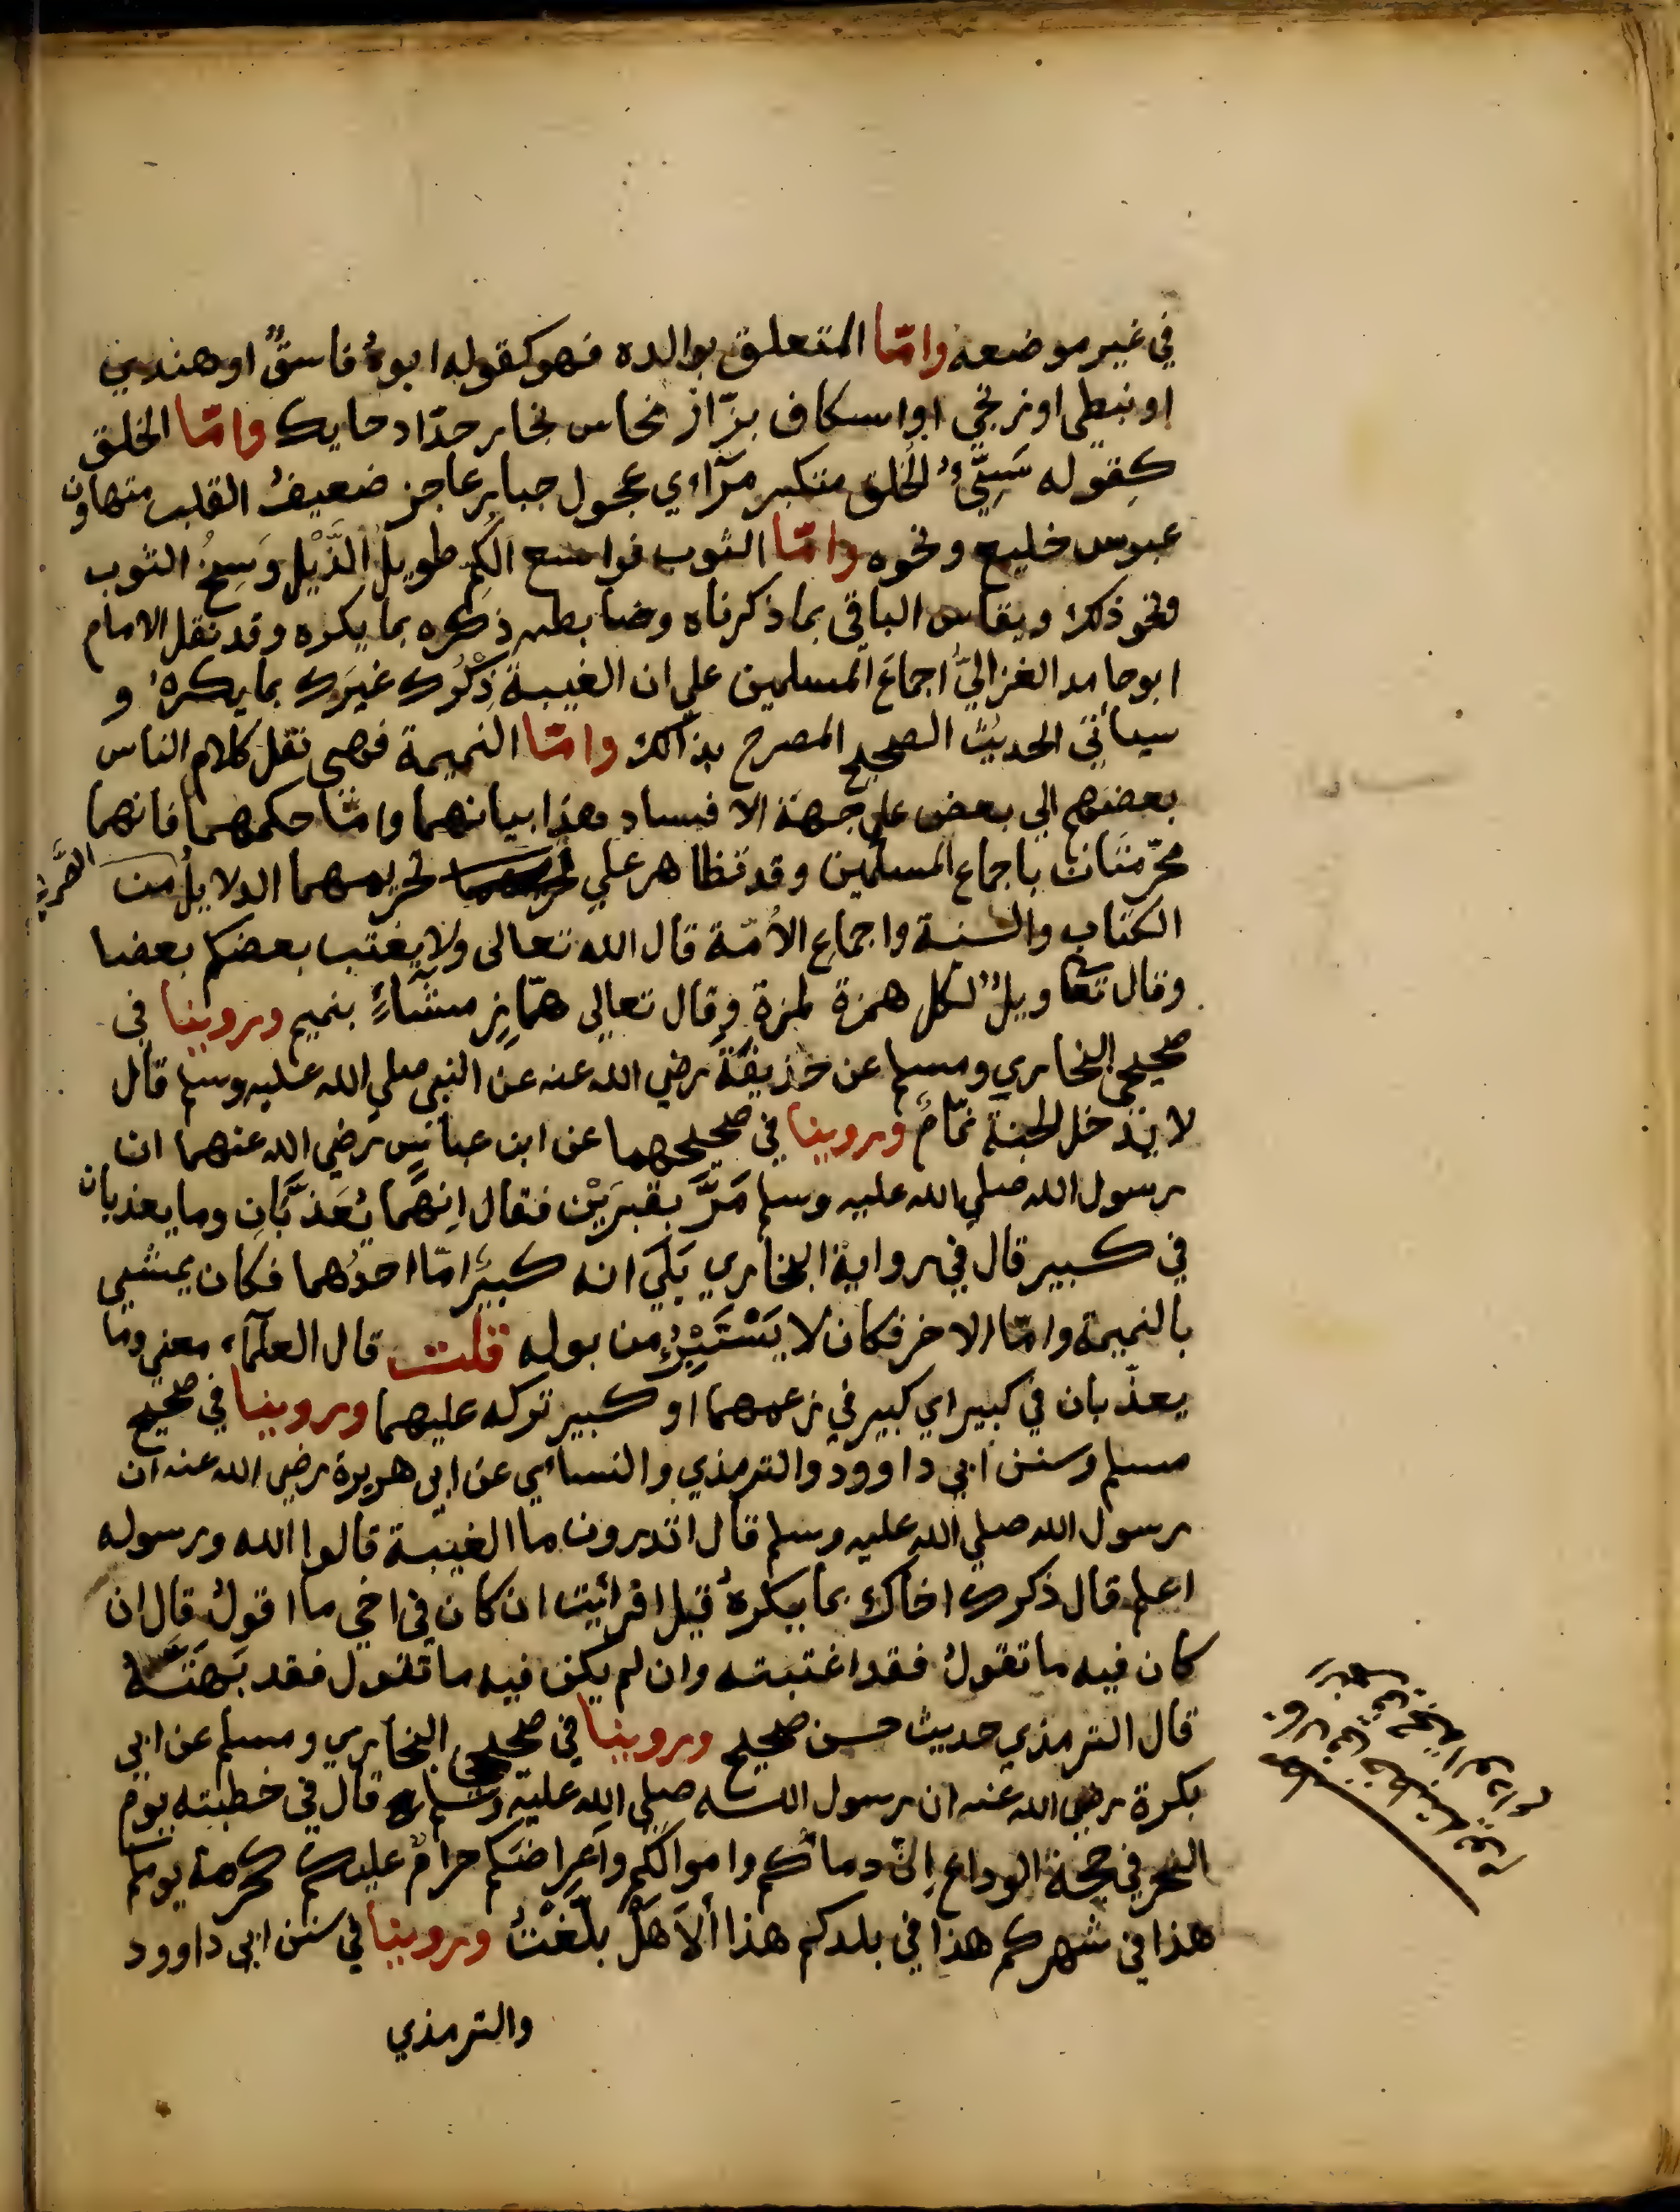 في غير موضعه وامّا المتعلق بوالده فهو كقوله ابوهُ فاسقٌ او هندي
او نبطي او زنجي او اسكاف بزّاز نخاس نجار حدّاد حايك وامّا الخلق
كقوله سَيِّئُ الخُلق متكبر مرآءي عجول جبار عاجز ضعيفُ القلب متهاون
عبوس خليع ونحوه وامّا الثوب فواسع الكُم طويلُ الذَّيْل وَسِخُ الثوب
ونحو ذلك ويقاس الباقي بما ذكرناه وضابطه ذكره بما يكره وقد نقل الامام
ابو حامد الغزاليُّ اجماعَ المسلمين علي ان الغيبة ذِكْرُك غيَرَك بما يكرهُ و
سيأتي الحديثُ الصحيح المصرح بذلك وامّا النميمة فهي نقل كلام الناس
بعضهم الي بعض علي جهة الافساد هذا بيانهما وامّا حكمهما فانهما
محرّمتان باجماع المسلمين وقد تظاهر علي تحريمهما الدلايلُ من الصَّريحة
الكتاب والسنة واجماع الأمّة قال الله تعالى ولا يغتب بعضكم بعضا
وقال تعا ويلٌ لكل همزة لمزة وقال تعالي همّازٍ مشّاءٍ بنميم وروينا في
صحيحي البخاري ومسلم عن حذيفة رضي الله عنه عن النبي صلي الله عليه وسلم قال
لا يدخل الجنة نمّامٌ وروينا في صحيحهما عن ابن عباس رضي الله عنهما ان
رسول الله صلي الله عليه وسلم مَرَّ بقبرَيْن فقال اِنهما يُعَذَّبَانِ وما يعذبان
في كبير قال في رواية البخاري بَلَي انه كبيرٌ امّا احدُهما فكان يمشي
بالنميمة وامّا الاخر فكان لا يَسْتَبْرِئُ من بوله قلت قال العلمآء معني وما
يعذّبان في كبير اي كبير في زعمهما او كبير تركه عليهما وروينا في صحيح
مسلم وسنن ابي داوود والترمذي والنسائي عن ابي هريرة رضي الله عنه ان
رسول الله صلي الله عليه وسلم قال اتدرون ما الغيبة قالوا الله ورسوله
اعلم قال ذكرك اخاك بما يكرهُ قيل افرأيت ان كان في اخي ما اقولُ قال ان
كان فيه ما تقولُ فقد اغتبته وان لم يكن فيه ما تقول فقد بَهَتَّهُ
قال الترمذي حديث حسن صحيح وروينا في صحيحي البخاري ومسلم عن ابي
بكرة رضي الله عنه ان رسول الله صلي الله عليه وسلم قال في خطبته يوم
النحر في حجة الوداع اِنّ دماءكم واموالكُم واَعراضَكم حرامٌ عليكم كحرمة يومكم
هذا في شهركم هذا في بلدكم هذا ألاَ هَلْ بلّغْتُ وروينا في سنن ابي داوود
والترمذي